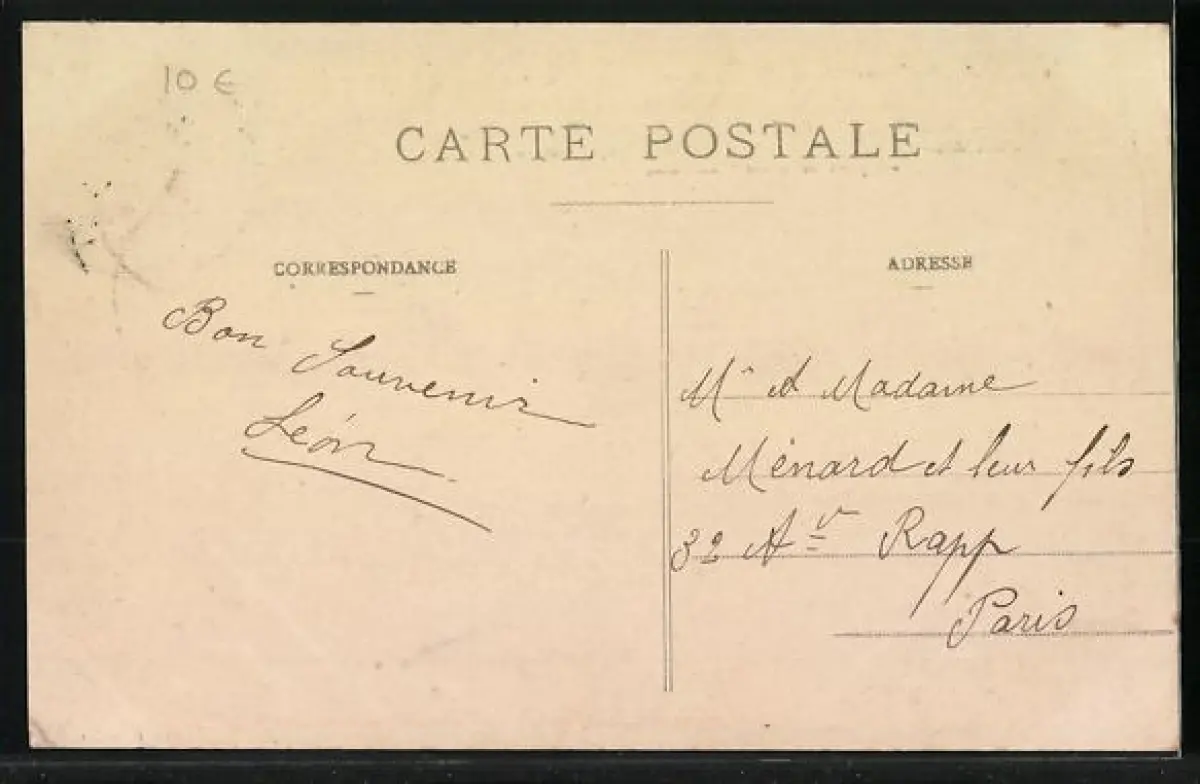 10 €
CARTE POSTALE
CORRESPONDANCE
Bon Souvenir
Léon
ADRESSE
Mr et Madame
Ménard et leur fils
32 Av Rapp
Paris